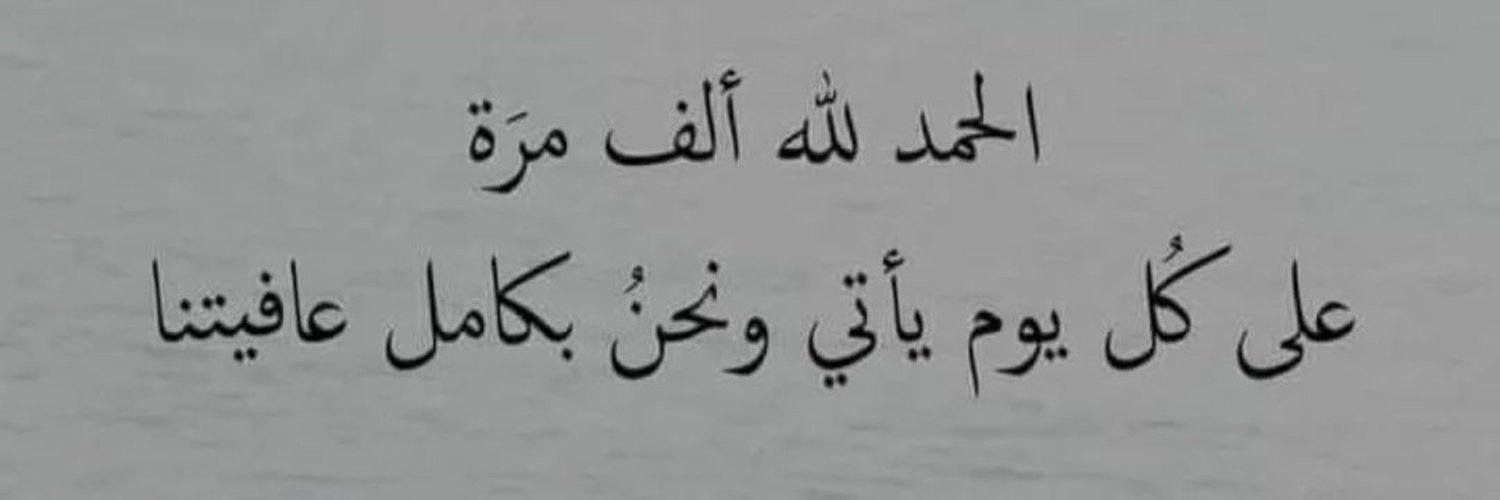 الحمد لله ألف مرَة
على كُل يوم يأتي ونحنُ بكامل عافيتنا